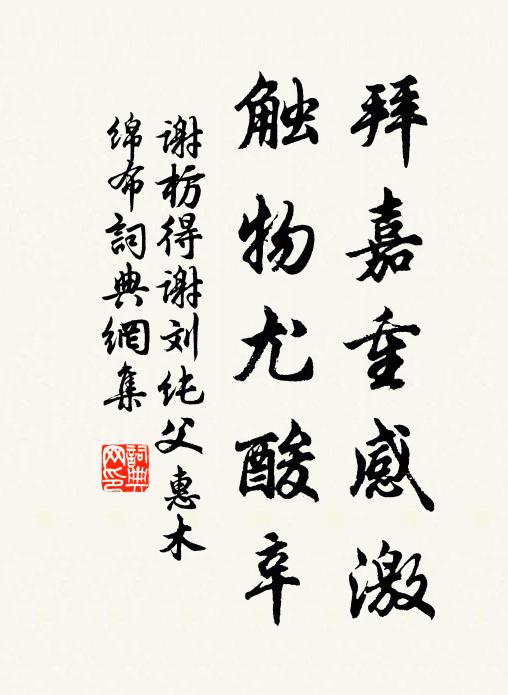 拜嘉重感激
触物尤酸辛
谢枋得谢刘纯父惠木
绵布詞典網集
詞典网印